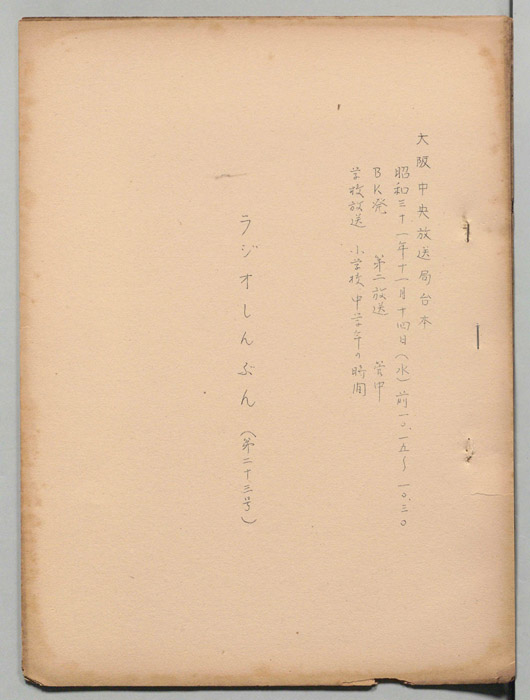 大阪中央放送局台本
昭和三十一年十一月十四日(水)前一〇.一五〜一〇.三〇
BK発 第二放送 管中
学校放送 小学校中学年の時間
ラジオしんぶん(第二十三号)